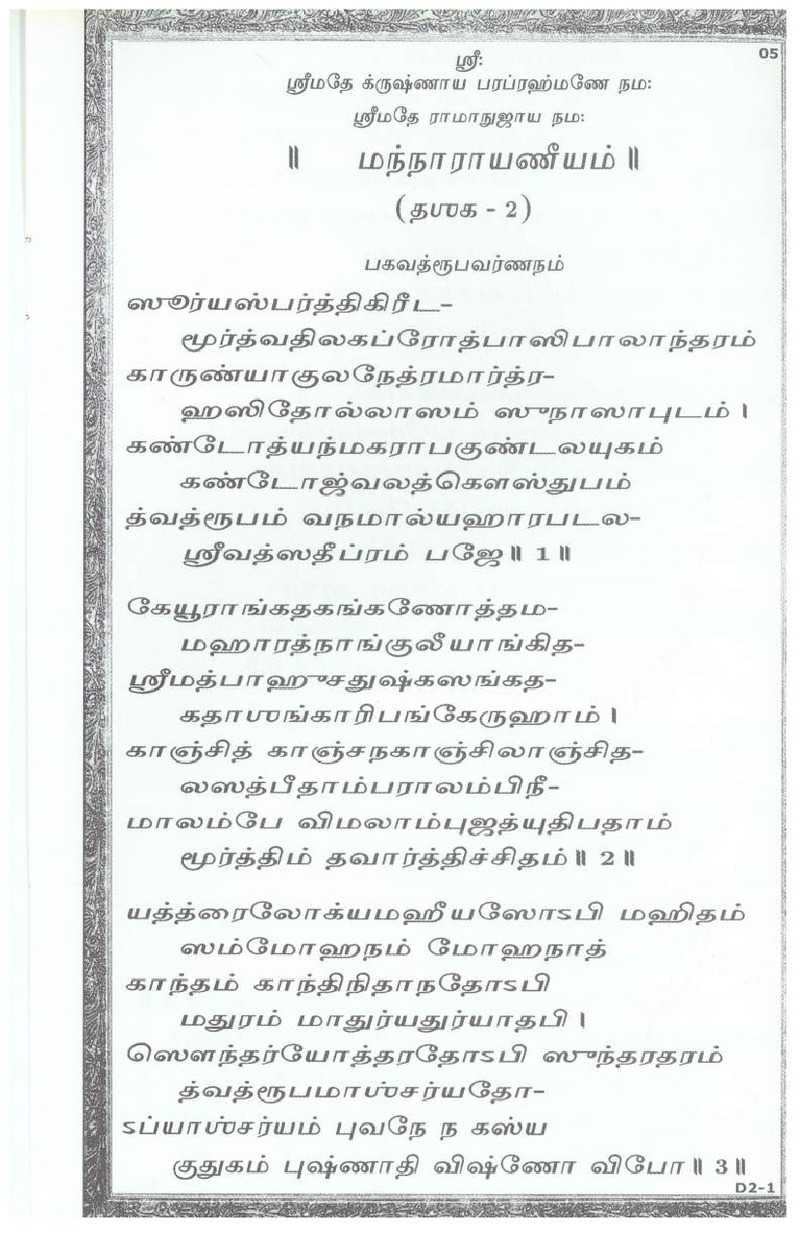 05
ஸ்ரீ:
ஸ்ரீமதே க்ருஷ்ணாய பரப்ரஹ்மணே நம:
ஸ்ரீமதே ராமாநுஜாய நம:
॥ மந்நாராயணீயம் ॥
(தஶக - 2)
பகவத்ரூபவர்ணநம்
ஸூர்யஸ்பர்த்திகிரீட–
மூர்த்வதிலகப்ரோத்பாஸிபாலாந்தரம்
காருண்யாகுலநேத்ரமார்த்ர–
ஹஸிதோல்லாஸம் ஸுநாஸாபுடம் ।
கண்டோத்யந்மகராபகுண்டலயுகம்
கண்டோஜ்வலத்கௌஸ்துபம்
த்வத்ரூபம் வநமால்யஹாரபடல–
ஸ்ரீவத்ஸதீப்ரம் பஜே ॥ 1 ॥
கேயூராங்கதகங்கணோத்தம–
மஹாரத்நாங்குலீயாங்கித–
ஸ்ரீமத்பாஹுசதுஷ்கஸங்கத–
கதாஶங்காரிபங்கேருஹாம் ।
காஞ்சித் காஞ்சநகாஞ்சிலாஞ்சித–
லஸத்பீதாம்பராலம்பிநீ–
மாலம்பே விமலாம்புஜத்யுதிபதாம்
மூர்த்திம் தவார்த்திச்சிதம் ॥ 2 ॥
யத்த்ரைலோக்யமஹீயஸோ஽பி மஹிதம்
ஸம்மோஹநம் மோஹநாத்
காந்தம் காந்திநிதாநதோ஽பி
மதுரம் மாதுர்யதுர்யாதபி ।
ஸௌந்தர்யோத்தரதோ஽பி ஸுந்தரதரம்
த்வத்ரூபமாஶ்சர்யதோ-
஽ப்யாஶ்சர்யம் புவநே ந கஸ்ய
குதுகம் புஷ்ணாதி விஷ்ணோ விபோ ॥ 3 ॥
D2-1